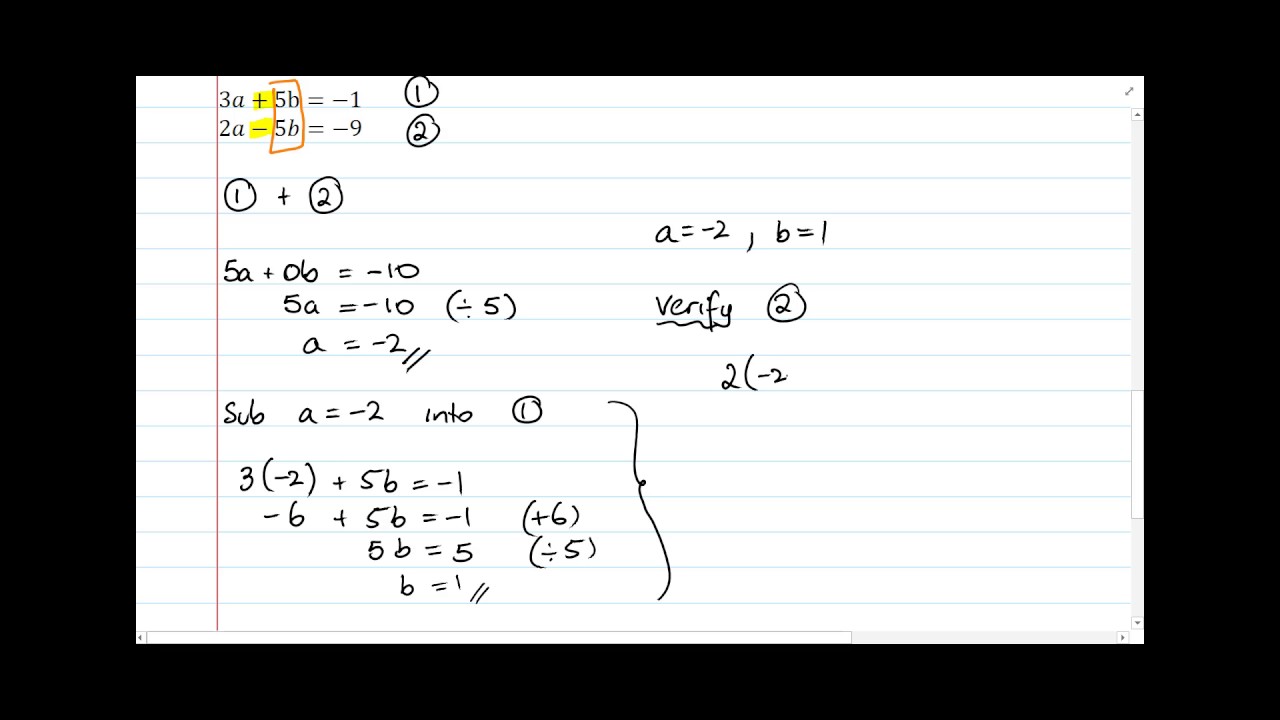 3a + 5b = −1 ①
2a − 5b = −9 ②
① + ②
5a + 0b = -10
5a = -10 (÷ 5)
a = -2 //
Sub a = -2 into ①
3(-2) + 5b = -1
-6 + 5b = -1 (+6)
5b = 5 (÷ 5)
b = 1 //
a = -2 , b = 1
Verify ②
2(-2